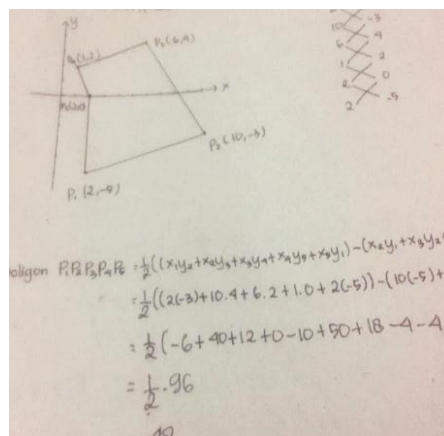 y
P4(1,2)
P3(6,4)
x
P2(10,-3)
P1(2,-5)
-3
10
4
6
2
1
0
2
2
-5
oligon P1P2P3P4P5 = 1/2((x1y2+x2y3+x3y4+x4y5+x5y1)-(x2y1+x3y2
= 1/2((2(-3)+10.4+6.2+1.0+2(-5))-(10(-5)+
= 1/2(-6+40+12+0-10+50+18-4-4
= 1/2.96